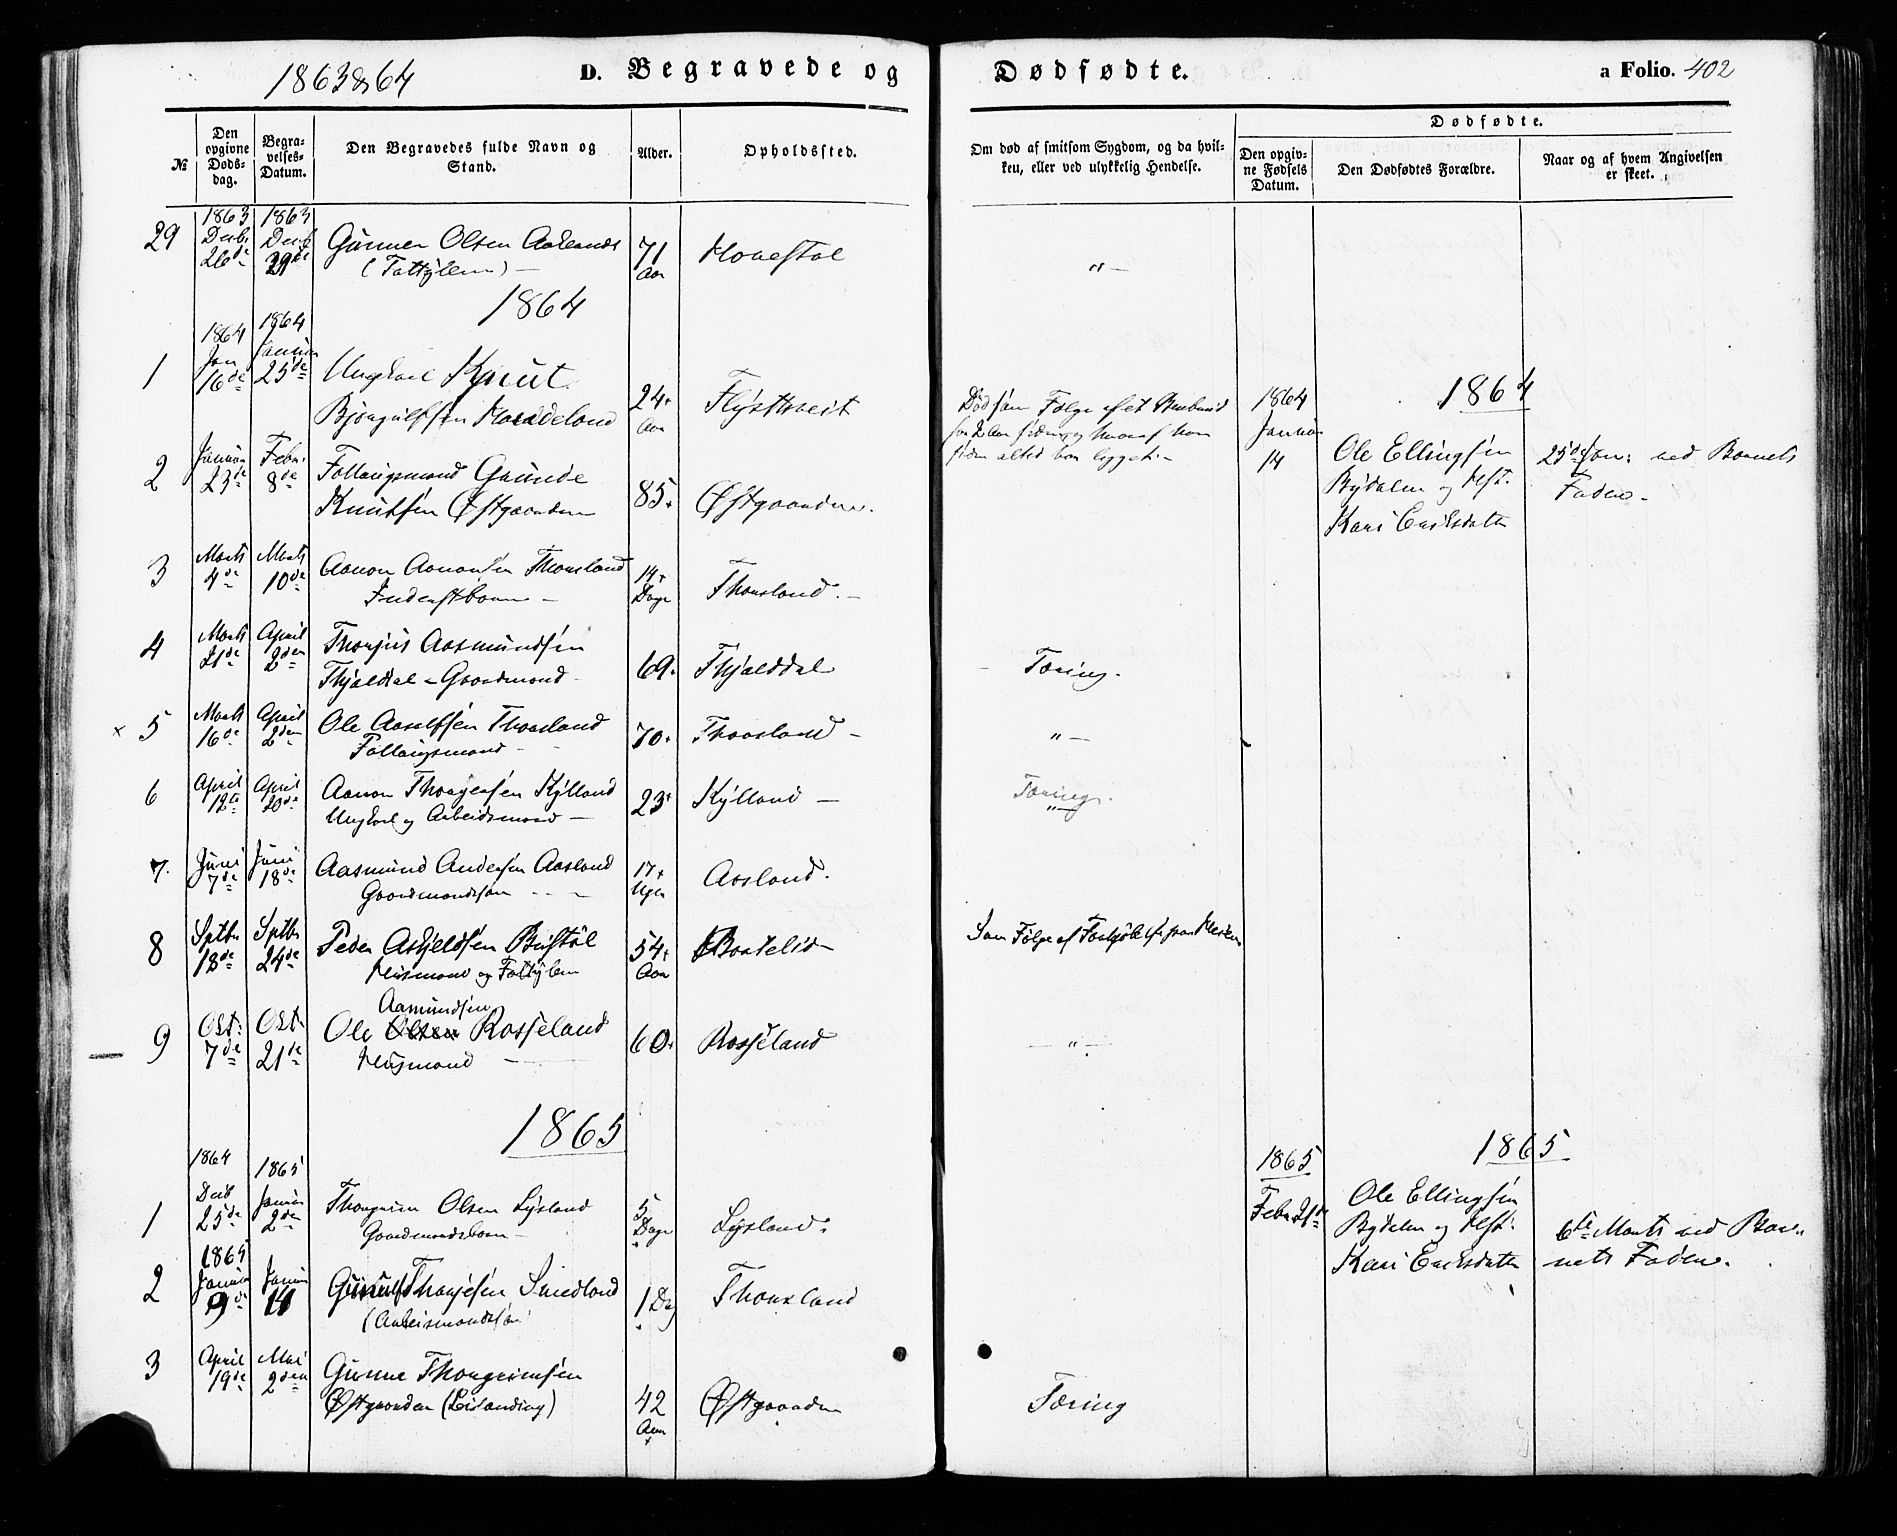 1863 & 64
D. Begravede og
Dødfødte.
a Folio. 402
№
Den opgivne Døds-dag.
Begra-velses-Datum.
Den Begravedes fulde Navn og Stand.
Alder.
Opholdssted.
Om død af smitsom Sygdom, og da hvil-ken, eller ved ulykkelig Hendelse.
Dødfødte.
Den opgiv-ne Fødsels Datum.
Den Dødfødtes Forældre.
Naar og af hvem Angivelsen er skeet.
29
1863
Decb.
26de
1863
Decb
29de
Gunner Olsen
(Fattiglem) —
71
Aar
„ —
1864
1
1864
Jan
16de
1864
Januar
25de
Ungkarl Knut
24
Aar
Flystveit
Død som Følge af et
1864
Januar
14
1864
Ole Ellingsen
Bydalen og Hst.
Kari Eriksdatter
25de Jan: ved Barnets
Fader.
2
Januar
23de
Febr.
8de
Follaugsmand Gunde
Knutsen Østgaarden
85
Østgaarden.
3
Marts
4de
Marts
10de
Aanon Aanonsen Thorsland
Inderstbarn —
14
Dage
Thorsland. —
4
Marts
21de
April
2den
Thorjus Aasmundsen
Thjaldal - Gaardmand
69
Thjalddal
Tæring.
× 5
Marts
16de
April
2den
Ole Aasulfsen Thorsland
Follaugsmand
70
Thorsland —
„ —
6
April
12te
April
20de
Aanon Thorjersen Kylland
Ungkarl og Arbeidsmand —
23
Kylland —
Tæring.
„
7.
Juni
7de
Juni
18de
Aasmund Andersen Aasland
Gaardmandssøn
17
Uger
Aasland.
8
Septbr
18de
Septbr
24de
Peder Askjeldsen Bustøl
Husmand og Fattiglem
54
Aar
Bortelid
Som Følge af Forkjølelse paa Heien
9
Okt:
7de
Okt:
21de
Aasmundsen
Ole Olsen Rosseland
Husmand —
60
Rosseland
— „ —
1865
1
1864
Decb
25de
1865
Januar
2den
Thorgrim Olsen Lysland
Gaardmandsbarn —
5
Dage
Lysland.
1865
Febr. 21de
1865
Ole Ellingsen
Bydalen og Hst:
Kari Eriksdatter
6te Marts ved Bar-
nets Fader.
2
1865
Januar
9de
Januar
11
Thorjesen Smedland
(Arbeismandssøn
1 Dag
Thorsland
3
April
19de
Mai
2den
Gunne Thorgrimsen
Østgaarden (Leilænding)
42
Aar
Østgaarden
Tæring